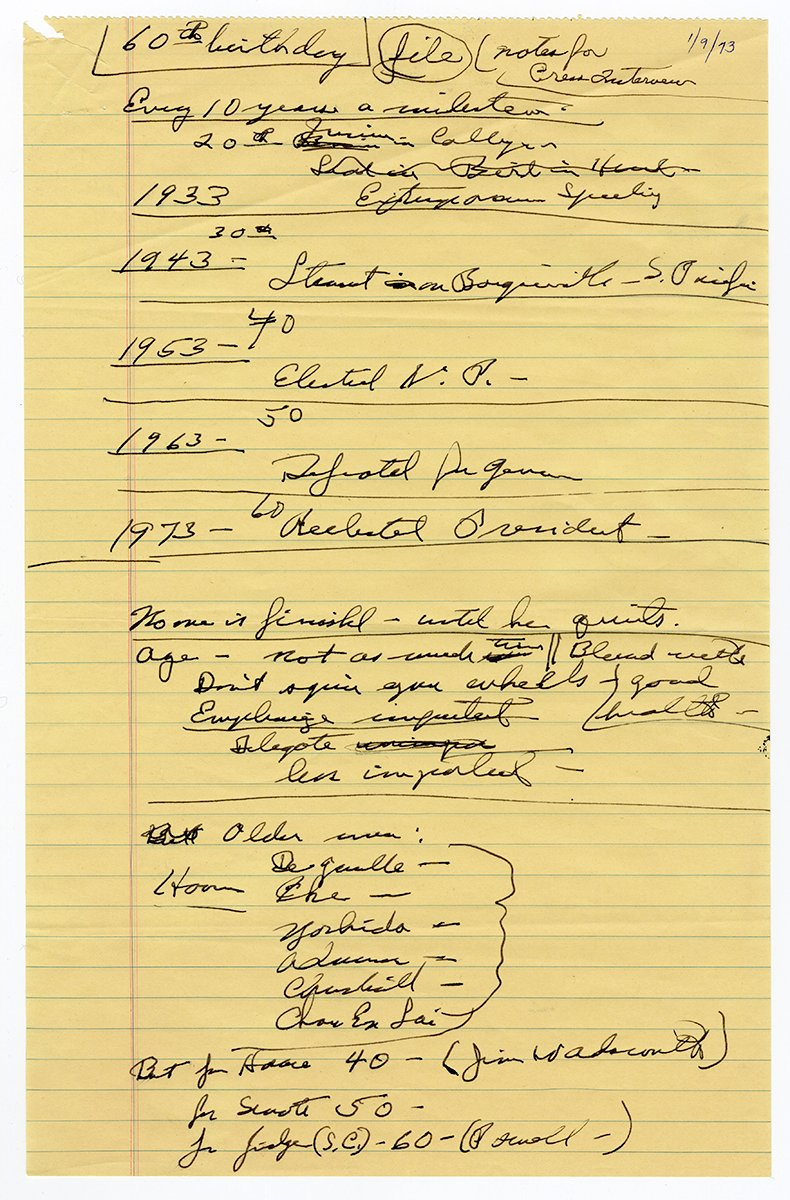 60th birthday file (notes for 1/9/73
Press Interview
Every 10 years a milestone:
20th Junior in College
Student Body
1933 Extemporaneous Speaking
30th
1943 - on Bougainville - S. Pacific
40
1953 -
Elected V. P. -
50
1963 -
Defeated for Governor
1973 - 60 Reelected President -
No one is finished - until he quits.
Age - not as much time || Blend with
Don't spin your wheels } good
Emphasize important (health -
Delegate unimpor
less important -
But Older men:
De Gaulle -
Hoover Ike -
Yoshida -
Adenauer -
Churchill -
Chou En Lai -
But for House 40 - (Jim Wadsworth)
for Senate 50 -
for Judge (S.C.) - 60 - (Powell -)